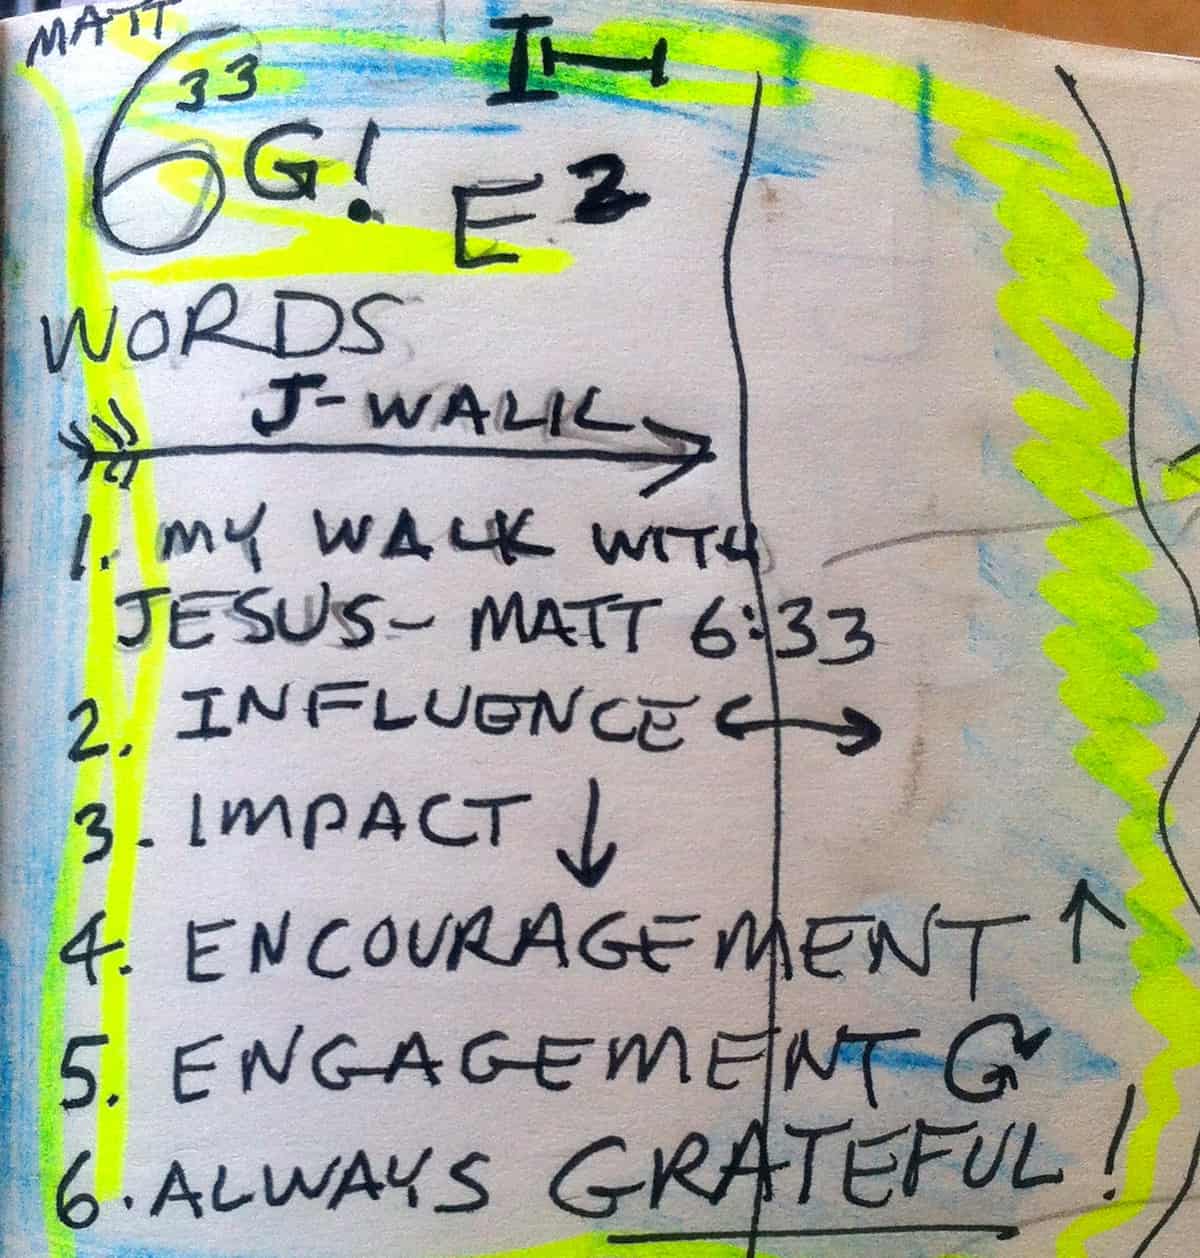 MATT
6 33 G! I H
E²
WORDS
J-WALK
1. MY WALK WITH
JESUS- MATT 6:33
2. INFLUENCE ↔
3. IMPACT ↓
4. ENCOURAGEMENT ↑
5. ENGAGEMENT
6. ALWAYS GRATEFUL!